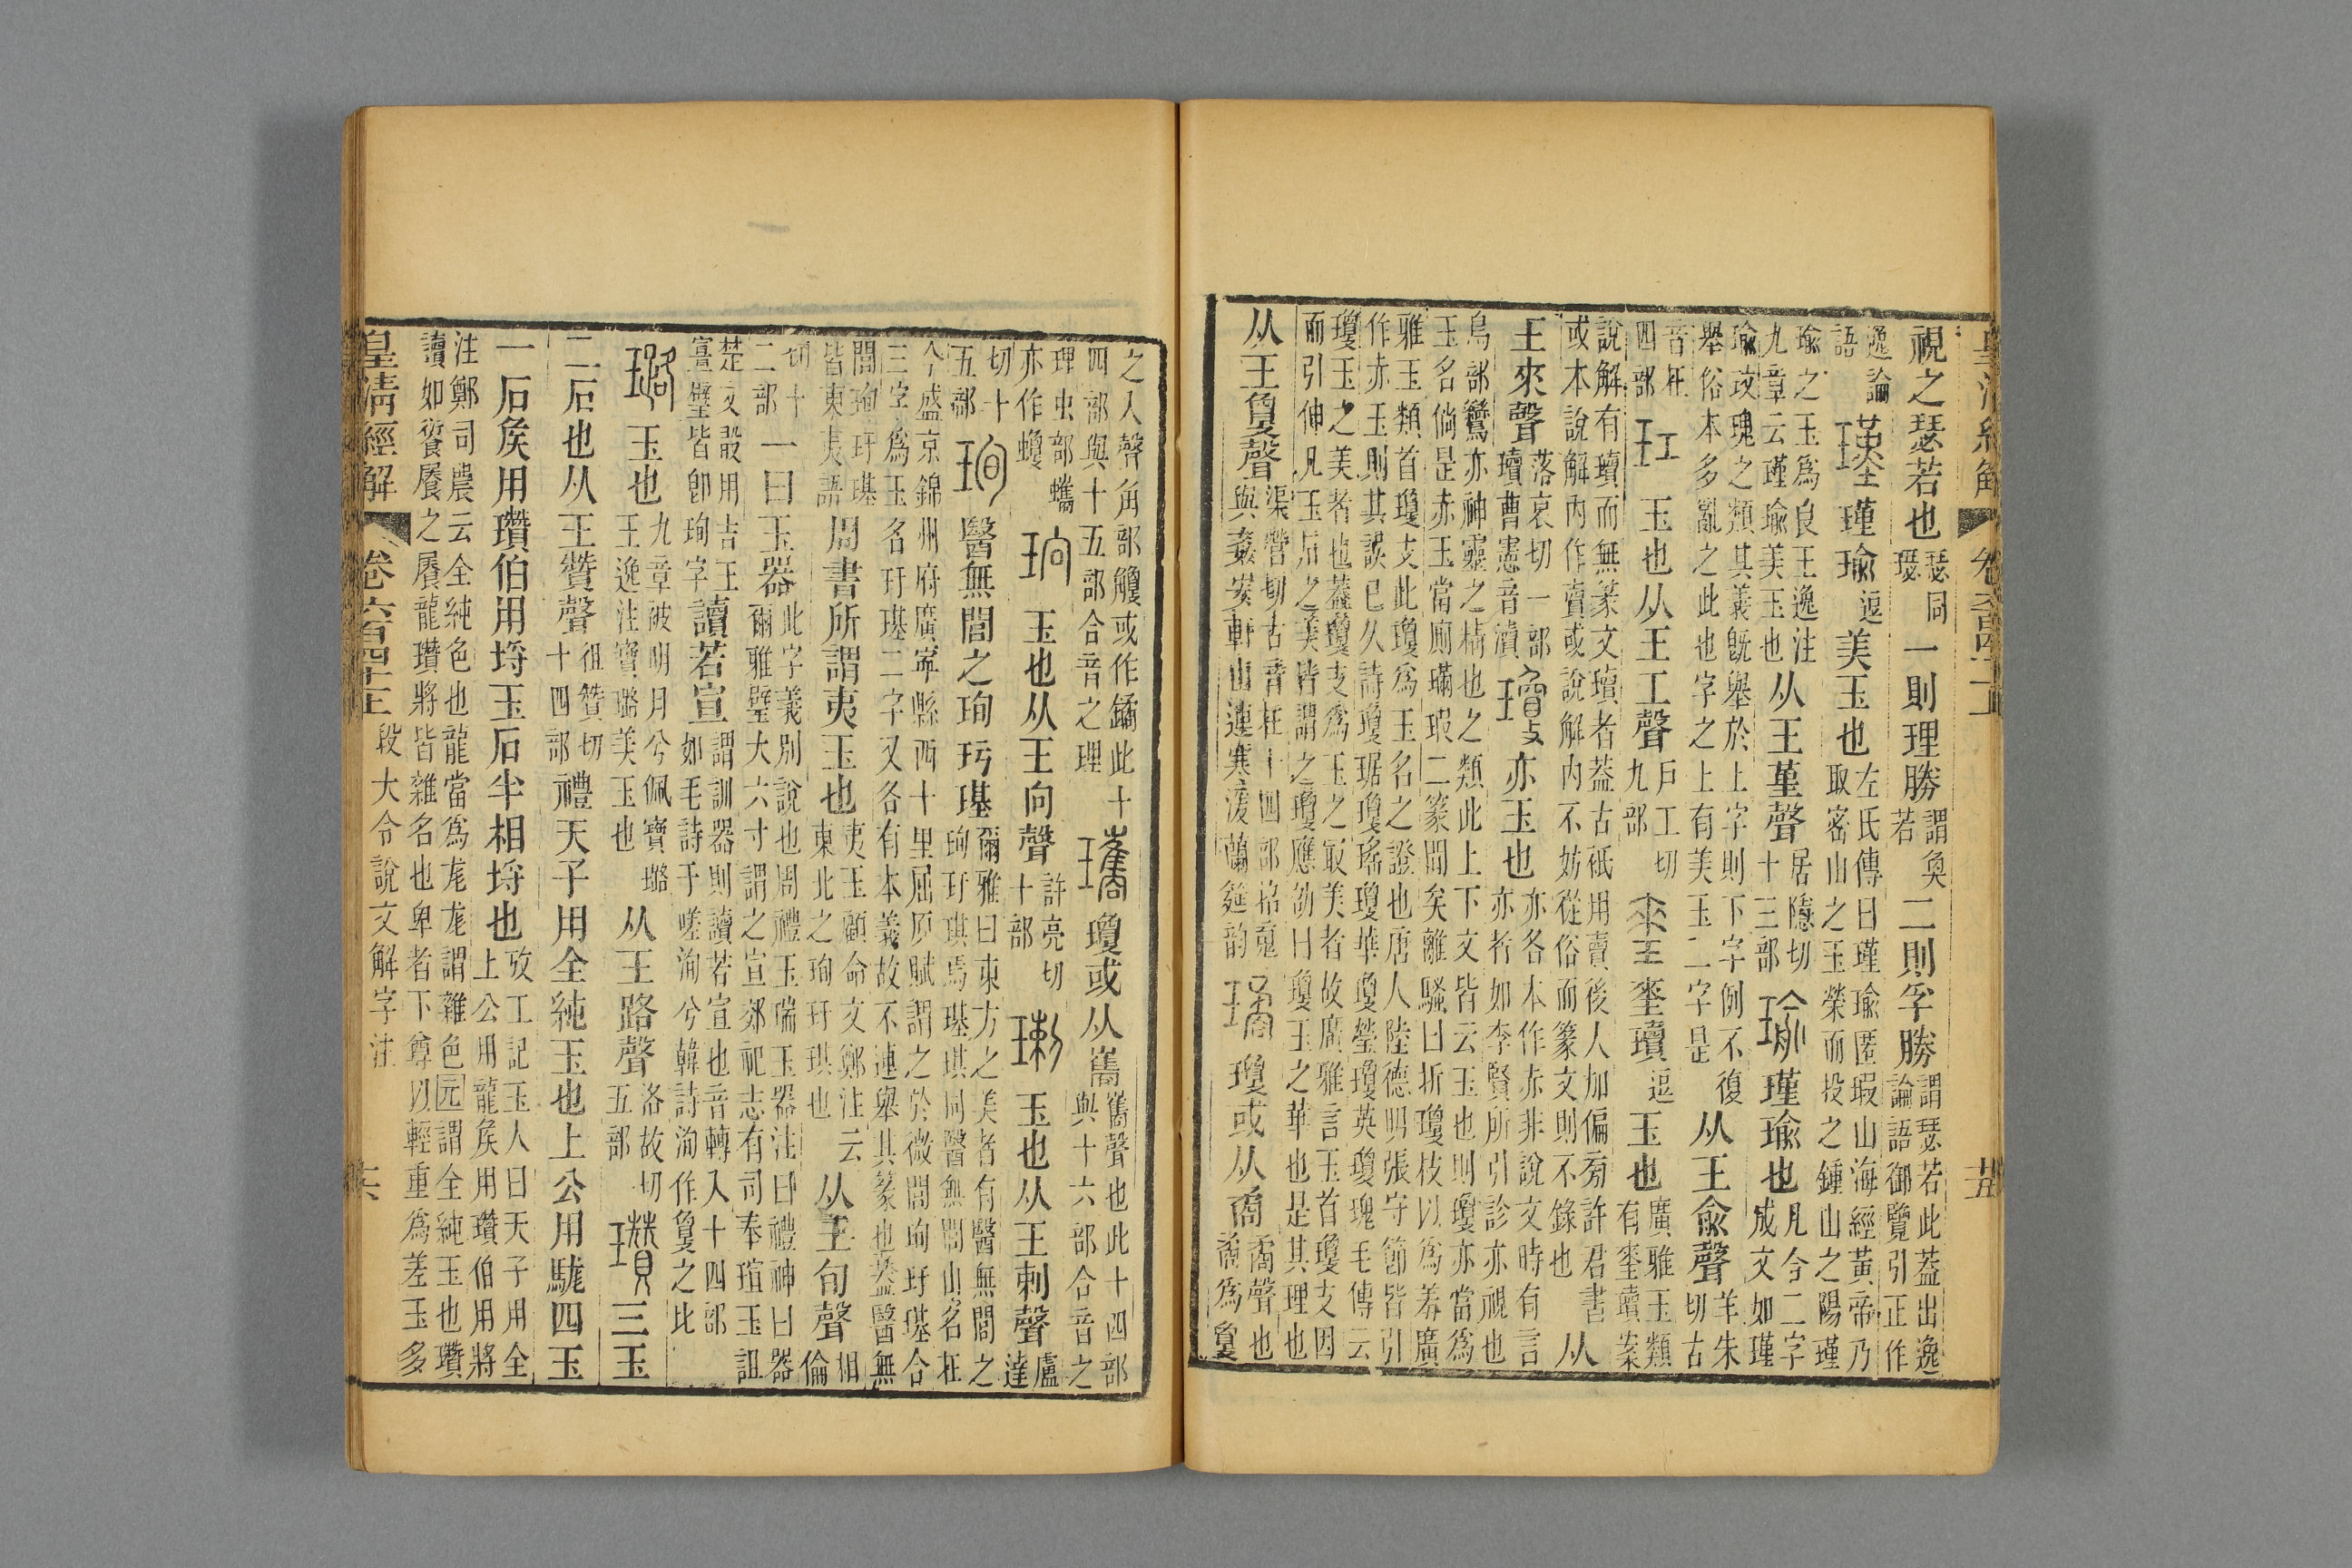 皇清經解 卷六百四十一 十五
視之瑟若也瑟同璱一則理勝謂奐若二則孚勝謂瑟若此蓋出逸論語御覽引正作
逸論語瑾瑾瑜逗美玉也左氏傳曰瑾瑜匿瑕山海經黃帝乃取密山之玉榮而投之鍾山之陽瑾
瑜之玉爲良王逸注九章云瑾瑜美玉也从王堇聲居隱切十三部瑜瑾瑜也凡合二字成文如瑾
瑜玫瑰之類其義旣舉於上字則下字例不復舉俗本多亂之此也字之上有美玉二字是从王俞聲羊朱切古
音在四部玒玉也从王工聲戶工切九部㻒㻒瓄逗玉也廣雅玉類有㻒瓄案
說解有瓄而無篆文瓄者葢古祇用賣後人加偏旁許君書或本說解內作賣或說解內不妨從俗而篆文則不錄也从
王來聲落哀切一部瓄曹憲音瀆瓊亦玉也亦各本作赤非說文時有言亦者如李賢所引診亦視也
鳥部鸞亦神靈之精也之類此上下文皆云玉也則瓊亦當爲玉名倘是赤玉當廁璊瑕二篆閒矣離騷曰折瓊枝以爲羞廣
雅玉類首瓊支此瓊爲玉名之證也唐人陸德明張守節皆引作赤玉則其誤已久詩瓊琚瓊瑤瓊華瓊瑩瓊英瓊瑰毛傳云
瓊玉之美者也葢瓊支爲玉之最美者故廣雅言玉首瓊支因而引伸凡玉石之美皆謂之瓊應劭曰瓊玉之華也是其理也
从王敻聲渠營切古音在十四部招䰟與姦安軒山連寒湲蘭筵韵璚瓊或从矞矞聲也矞爲敻
之入聲角部觼或作鐍此十四部與十五部合音之理瓗瓊或从巂巂聲也此十四部與十六部合音之
理虫部蠵亦作蠵珦玉也从王向聲許亮切十部瓎玉也从王剌聲盧達
切十五部珣醫無閭之珣玗璂爾雅曰東方之美者有醫無閭之珣玗琪焉璂琪同醫無閭山名在
今盛京錦州府廣寧縣西十里屈原賦謂之於微閭珣玗璂合三字爲玉名玗璂二字又各有本義故不連舉其篆也葢醫無
閭珣玗璂皆東夷語周書所謂夷玉也夷玉顧命文鄭注云東北之珣玗琪也从王旬聲相倫
切十二部一曰玉器此字義別說也周禮玉瑞玉器注曰禮神曰器爾雅璧大六寸謂之宣郊祀志有司奉瑄玉詛
楚文㱾用吉玉宣璧皆卽珣字讀若宣謂訓器則讀若宣也音轉入十四部如毛詩于嗟洵兮韓詩洵作敻之比
璐玉也九章被明月兮佩寶璐王逸注寶璐美玉也从王路聲洛故切五部瓚三玉
二石也从王贊聲徂贊切十四部禮天子用全純玉也上公用駹四玉
一石矦用瓚伯用埒玉石半相埒也攷工記玉人曰天子用全上公用龍矦用瓚伯用將
注鄭司農云全純色也龍當爲尨尨謂雜色囩謂全純玉也瓚讀如䉼饡之饡龍瓚將皆雜名也卑者下尊以輕重爲差玉多
皇清經解 卷六百四十一 段大令說文解字注 十六